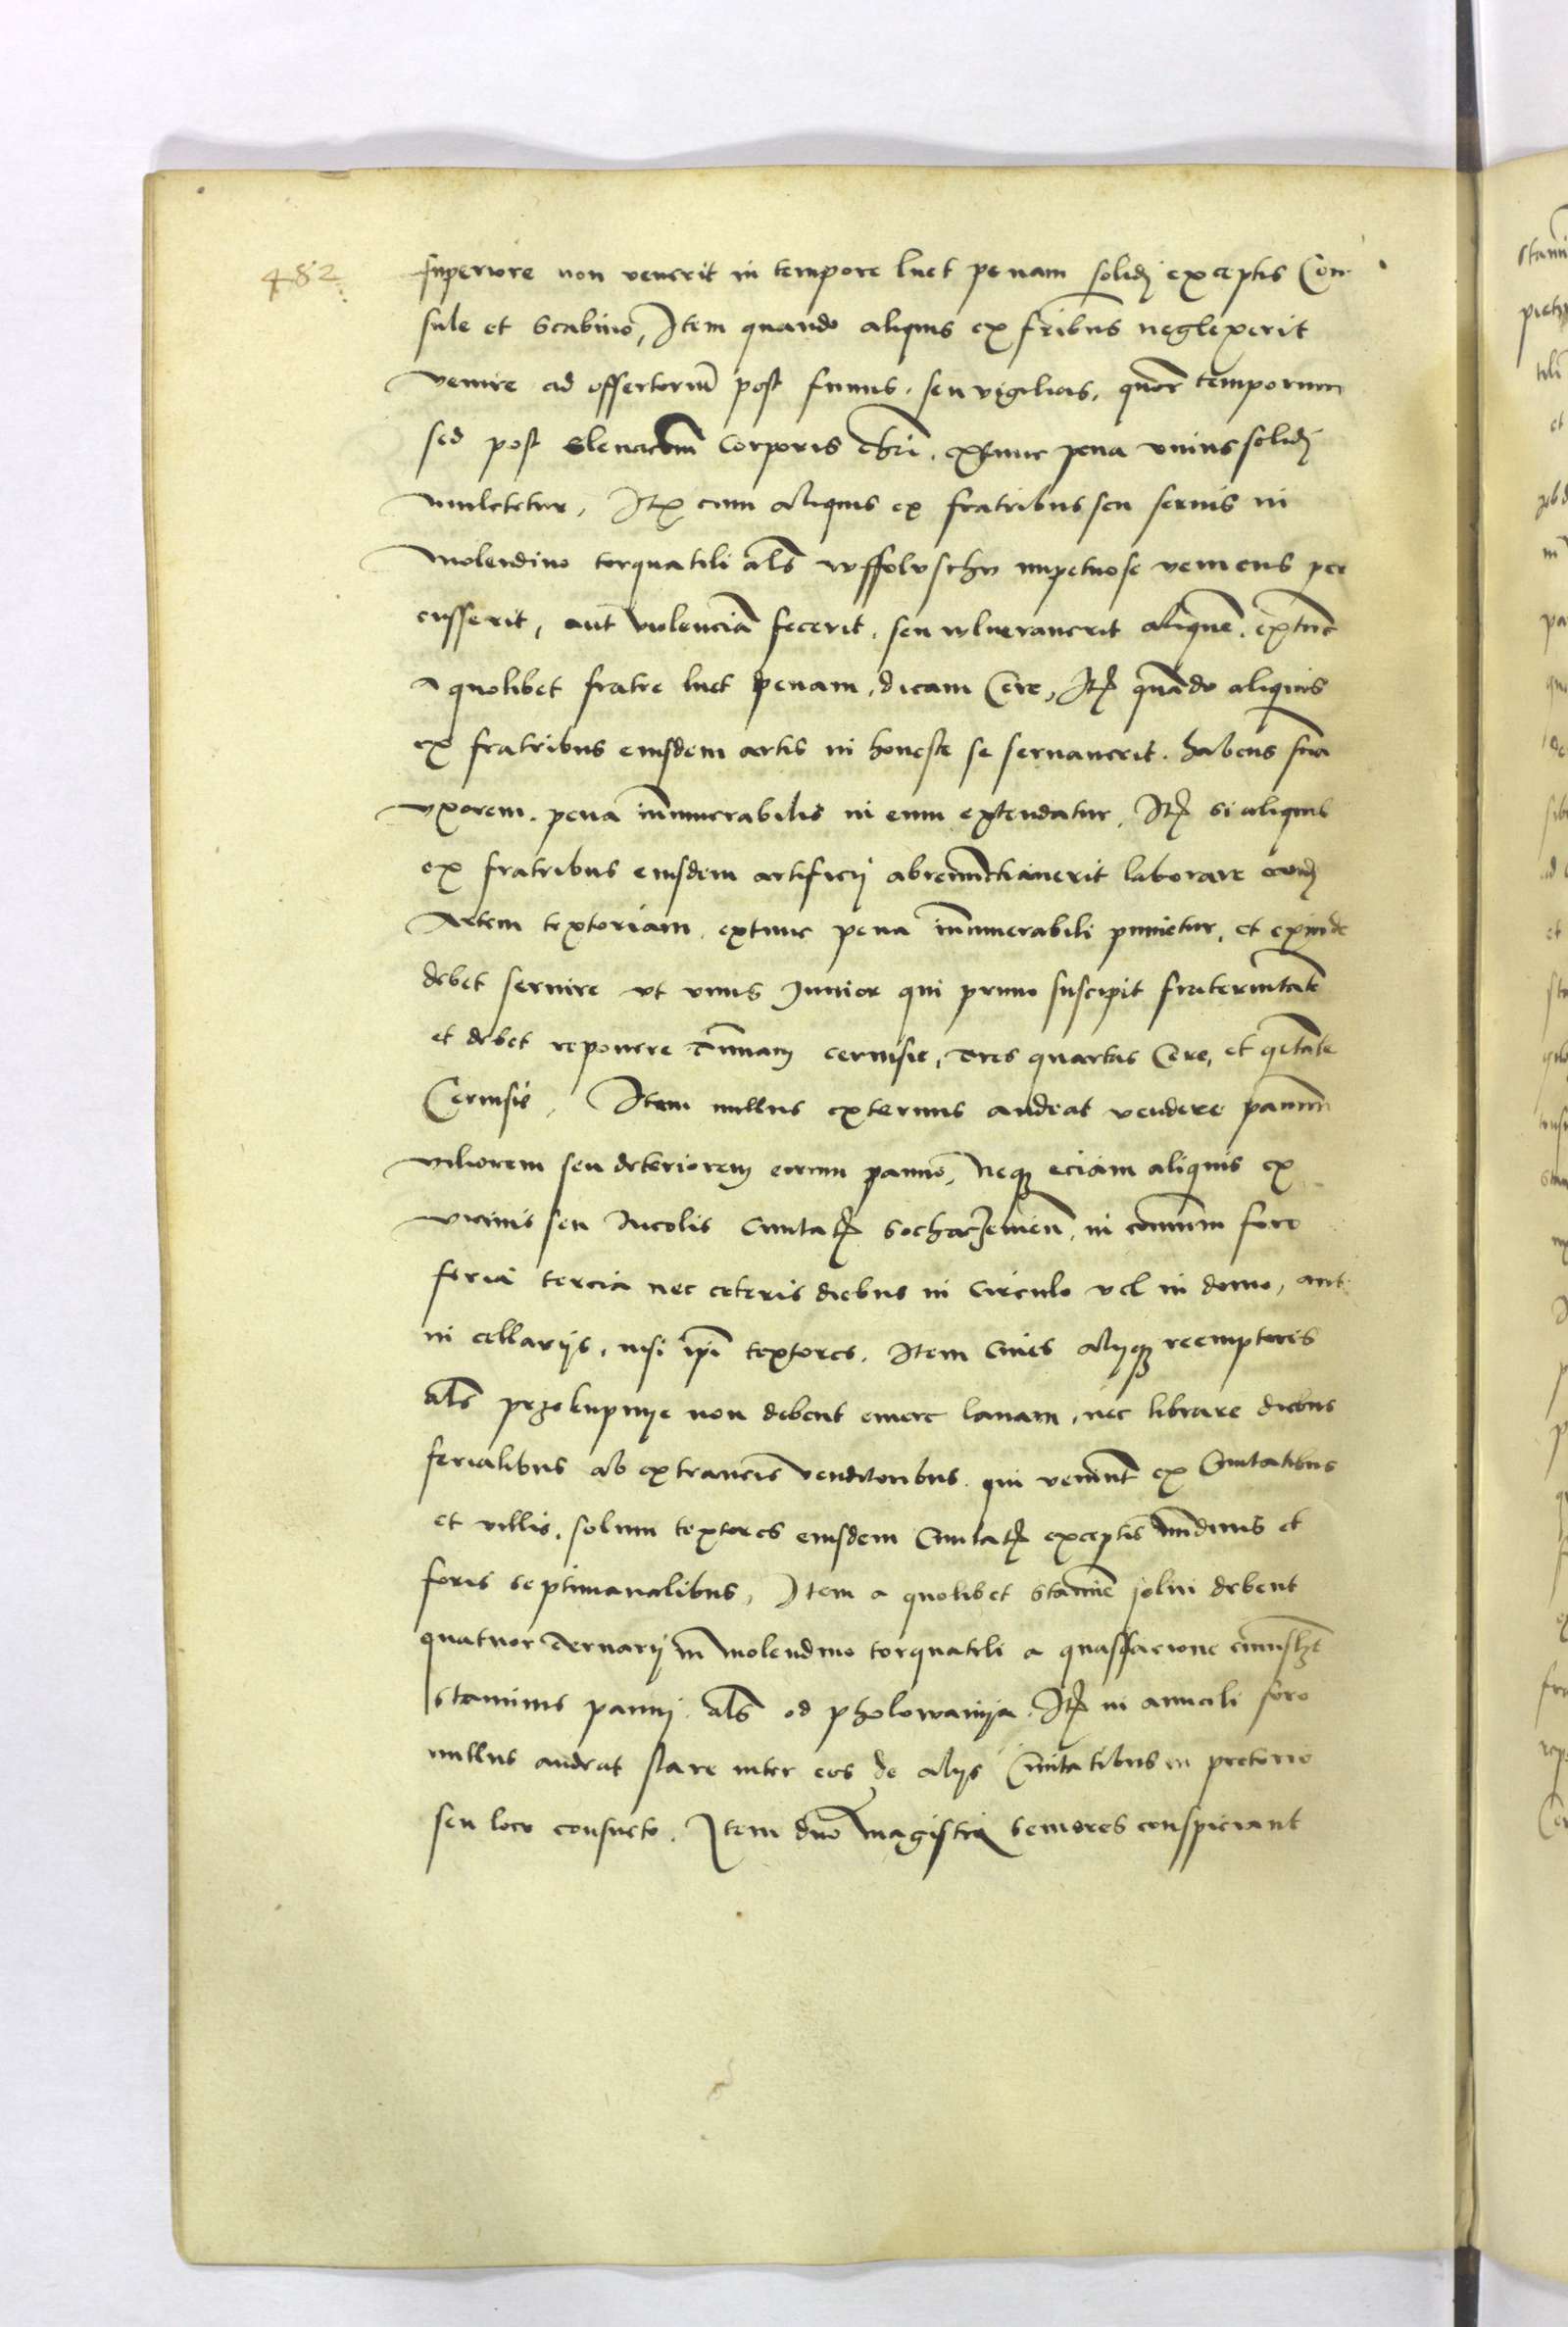 482
superiore non venerit in tempore luet penam solidj exceptis Con
sule et Scabino, Item quando aliquis ex fribus neglexerit
venire ad offertoriu post funus, seu vigilias, quor temporum
sed post eleuacom Corporis chri, extunc pena vnius solidj
mulctetur, Itp cum aliquis ex fratribus seu seruis in
molendino torquatili als wffolvschv impetuose veniens per
cusserit, aut violencia fecerit, seu vulnerauerit alique, extuc
a quolibet fratre luet penam, dicam Cere, Itp quado aliquis
ex fratribus eiusdem artis in honeste se seruauerit, habens sua
vxorem, pena innumerabilis in eum extendatur, Itp si aliquis
ex fratribus eiusdem artificij abrenunctiauerit laborare
Artem textoriam, extunc pena innumerabili punietur, et exinde
debet seruire vt vnus Junior qui primo suscipit fraternitate
et debet reponere tunnam ceruisie, tres quartas Cere, et
Ceruisie, Item nullus externus audeat vendere pannum
viliorem seu deteriorem eorum panno, neque eciam aliquis ex
vicinis seu Incolis Ciuitatis Sochaczewien, in comuni foro
feria tercia nec ceteris diebus in circulo vel in domo, aut
in cellarijs, nisi ipi textores, Item Ciues alijque reemptores
als przekupnye non debent emere lanam, nec librare diebus
ferialibus ab extraneis venditoribus qui veniunt ex Ciuitatibus
et villis, solum textores eiusdem Ciuitatis exceptis nundinis et
foris septimanalibus, Item a quolibet stamine solui debent
quatuor ternarij in molendino torquatili a quassacione cuiuslibet
staminis pannj als od pholowanija, Itp in annuali foro
nullus audeat stare inter eos de alijs Ciuitatibus in pretorio
seu loco consueto, Item duo magistri seniores conspiciant